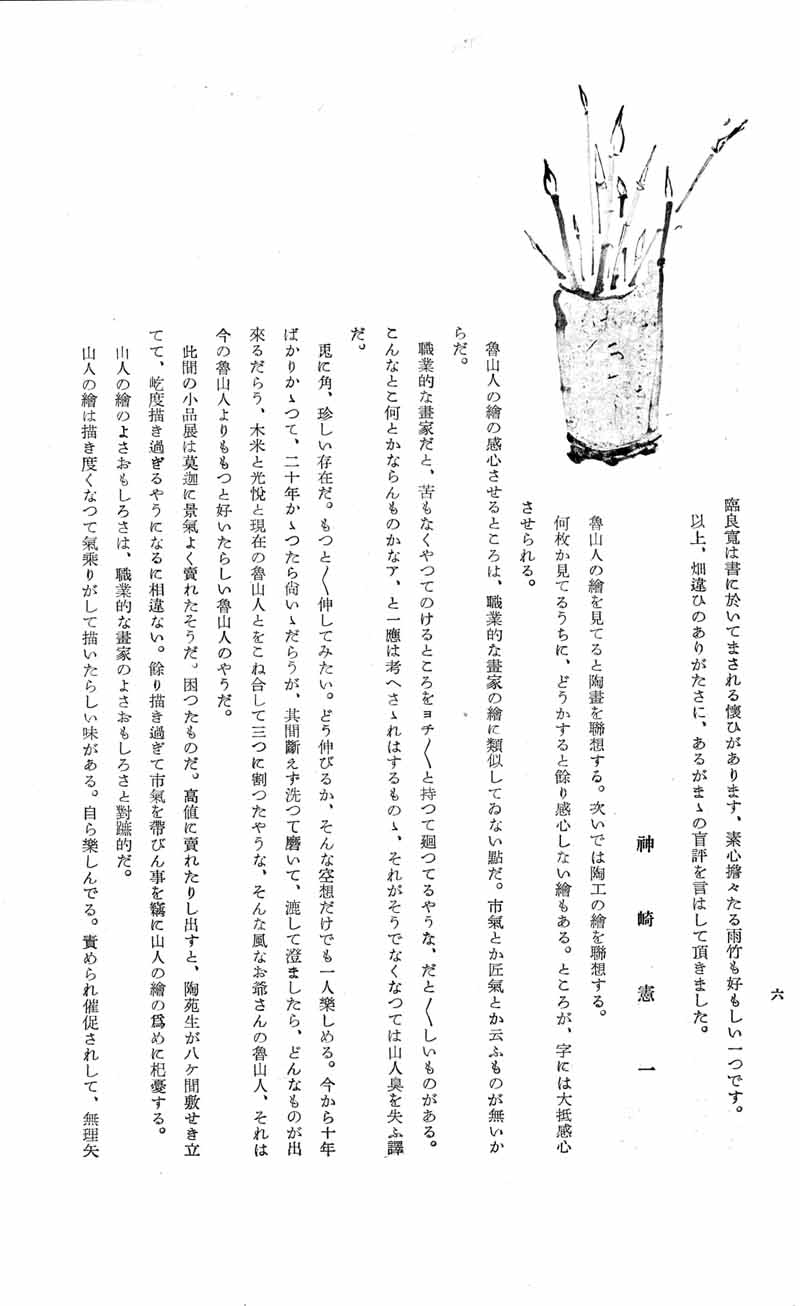 臨良寬は書に於いてまされる懷ひがあります、素心擔々たる雨竹も好もしい一つです。
以上、畑違ひのありがたさに、あるがまゝの盲評を言はして頂きました。
神崎憲一
魯山人の繪を見てると陶畫を聯想する。次いでは陶工の繪を聯想する。
何枚か見てるうちに、どうかすると餘り感心しない繪もある。ところが、字には大抵感心
させられる。
魯山人の繪の感心させるところは、職業的な畫家の繪に類似してゐない點だ。市氣とか匠氣とか云ふものが無いか
らだ。
職業的な畫家だと、苦もなくやつてのけるところをヨチ〱と持つて廻つてるやうな、だと〱しいものがある。
こんなとこ何とかならんものかなア、と一應は考へさゝれはするものゝ、それがそうでなくなつては山人臭を失ふ譯
だ。
兎に角、珍しい存在だ。もつと〱伸してみたい。どう伸びるか、そんな空想だけでも一人樂しめる。今から十年
ばかりかゝつて、二十年かゝつたら尙いゝだらうが、其間斷えず洗つて磨いて、漉して澄ましたら、どんなものが出
來るだらう、木米と光悅と現在の魯山人とをこね合して三つに割つたやうな、そんな風なお爺さんの魯山人、それは
今の魯山人よりももつと好いたらしい魯山人のやうだ。
此間の小品展は莫迦に景氣よく賣れたそうだ。困つたものだ。高値に賣れたりし出すと、陶苑生が八ケ間敷せき立
てて、屹度描き過ぎるやうになるに相違ない。餘り描き過ぎて市氣を帶びん事を竊に山人の繪の爲めに杞憂する。
山人の繪のよさおもしろさは、職業的な畫家のよさおもしろさと對蹠的だ。
山人の繪は描き度くなつて氣乘りがして描いたらしい味がある。自ら樂しんでる。責められ催促されして、無理矢
六